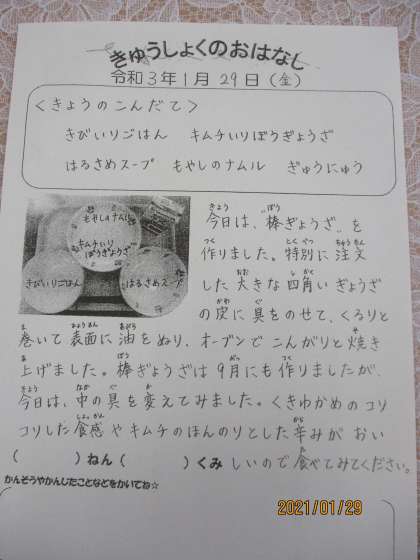 きゅうしょくのおはなし
令和3年1月29日(金)
<きょうのこんだて>
きびいりごはん キムチいりぼうぎょうざ
はるさめスープ もやしのナムル ぎゅうにゅう
もやしのナムル
キムチいり
ぼうぎょうざ
きびいりごはん
はるさめスープ
今日は、"棒ぎょうざ"を
作りました。特別に注文
した大きな四角いぎょうざ
の皮に具をのせて、くるりと
巻いて表面に油をぬり、オーブンでこんがりと焼き
上げました。棒ぎょうざは9月にも作りましたが、
今日は、中の具を変えてみました。くきわかめのコリ
コリした食感やキムチのほんのりとした辛みがおい
( )ねん( )くみ しいので食べてみてください。
かんそうやかんじたことなどをかいてね☆
2021/01/29